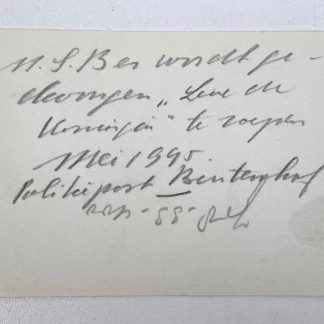 N.S.B er wordt ge-
dwongen „Leve de
Koningin" te roepen
Mei 1945.
Politiepost Buitenhof